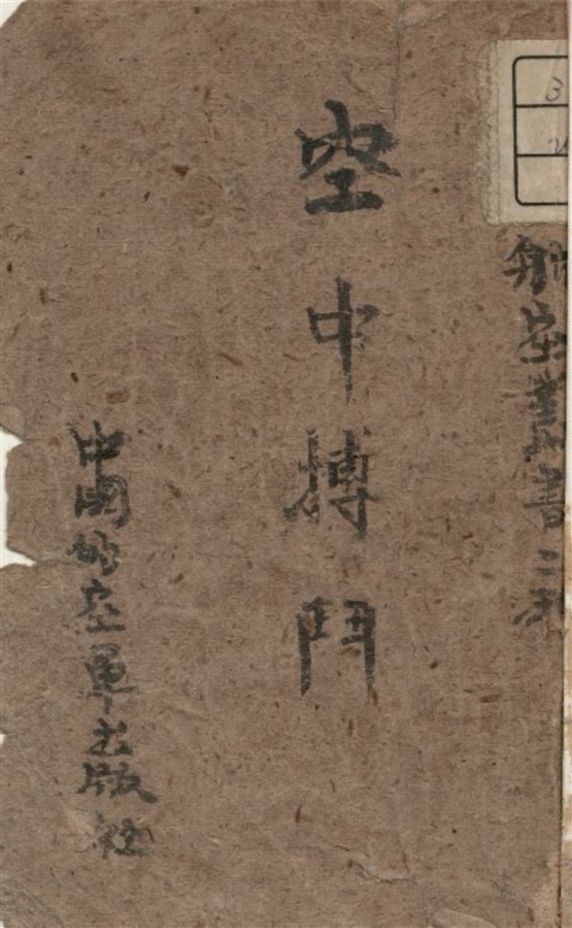 航空叢書之和
空中搏鬥
中國的空軍出版社